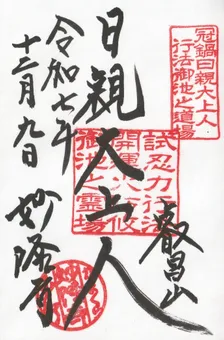 冠鍋日親大上人
行法御池之道場
叡昌山
日親大上人
試忍力行法
開運火伏
御池之霊場
令和七年
十二月九日
妙隆寺